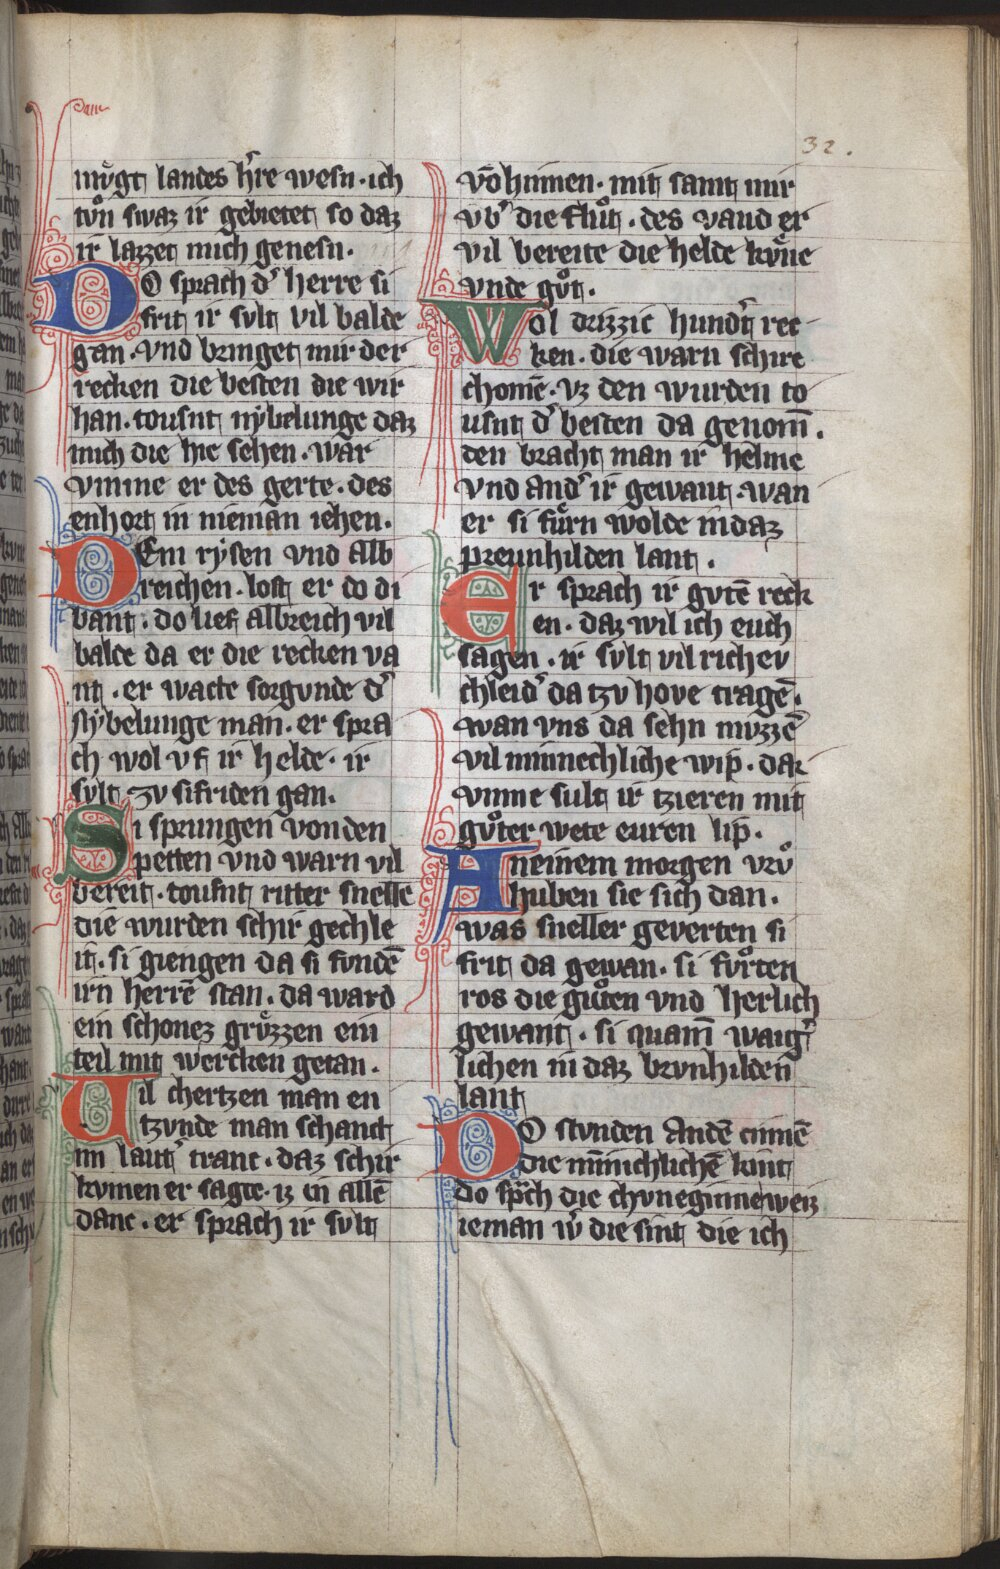 32.
mv̊gt landes h're wesn · ich
tv̊n swaz ir gebietet so daz
ir lazzet mich genesn ·
DO sprach d' herre si
frit ir svlt vil balde
gan · vnd bringet mir der
recken die besten die wir
han · tousnt nybelunge daz
mich die hie sehen · war
vmme er des gerte · des
enhort in nieman iehen ·
DEm rysen vnd alb
reichen · lost er do di
bant · do lief albreich vil
balde da er die recken va
nt · er wacte sorgvnde d'
nybelunge man · er spra
ch wol vf ir helde · ir
svlt zv sifriden gan ·
Si sprungen von den
petten vnd warn vil
bereit · tousnt ritter snelle
die wurden schir gechle
it · si giengen da si fvndē
irn herrē stan · da ward
ein schonez grv̊zzen ein
teil mit wercken getan ·
Vil chertzen man en
tzvnde man schanct
im laut' tranc · daz schir
kvmen er sagte · iz in allē
danc · er sprach ir svlt
vō hinnen · mit samt mir
vb' die flůt · des vand er
vil bereite die helde kv̊ne
vnde gůt ·
Wol drizzic hund't rec
ken · die warn schire
chomē · vz den wurden to
usnt d' besten da genom̄ ·
den bracht man ir helme
vnd and' ir gewant · wan
er si fůrn wolde in daz
prevnhilden lant ·
Er sprach ir gvtē reck
en · daz wil ich euch
sagen · ir svlt vil richev
chleid' da tzv hove tragē ·
wan vns da sehn mvzzē
vil minnechliche wip · dar
vmme sult ir tzieren mit
gůter wete euren lip ·
An einem morgen vrů
huben sie sich dan ·
was sneller geverten si
frit da gewan · si fůrten
ros die gůten vnd herlich
gewant · si quam̄ waig'
lichen in daz brvnhilden
lant
DO stvnden
die
do sp̄ch die chvneginne weiz
ieman die sint die ich